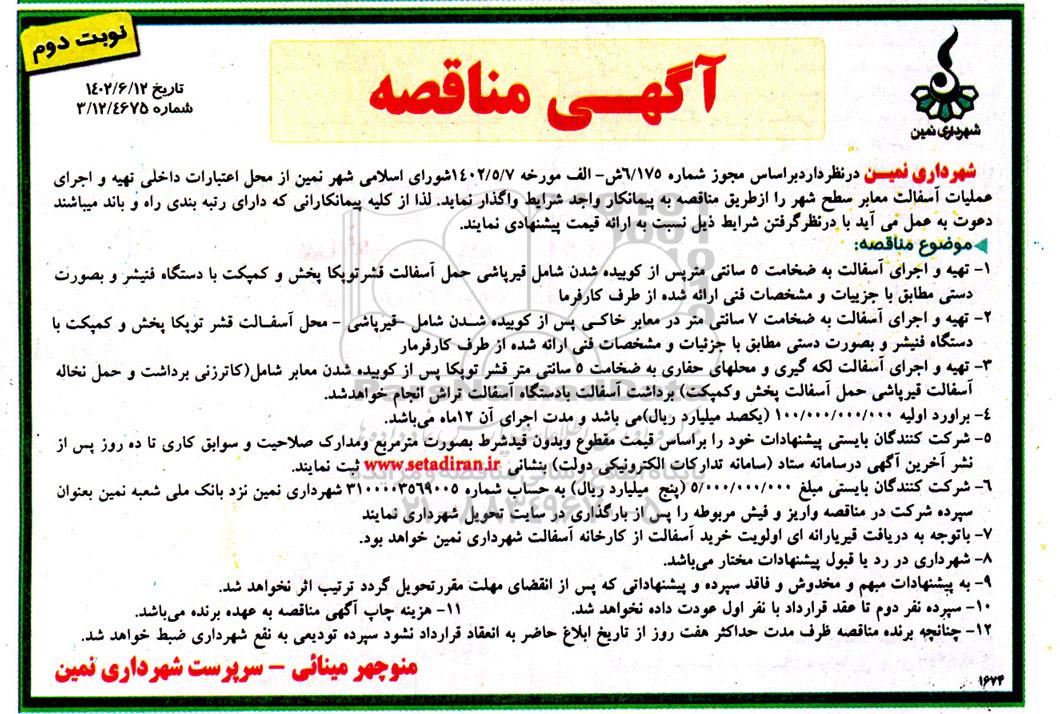 نوبت دوم
آگهی مناقصه
تاریخ ۱۴۰۲/۶/۱۲
شماره ۳/۱۲/۴۶۷۵
شهرداری نمین
شهرداری نمین درنظرداردبراساس مجوز شماره ۶/۱۷۵ش- الف مورخه ۱۴۰۲/۵/۷شورای اسلامی شهر نمین از محل اعتبارات داخلی تهیه و اجرای
عملیات آسفالت معابر سطح شهر را ازطریق مناقصه به پیمانکار واجد شرایط واگذار نماید. لذا از کلیه پیمانکارانی که دارای رتبه بندی راه و باند میباشند
دعوت به عمل می آید با درنظرگرفتن شرایط ذیل نسبت به ارائه قیمت پیشنهادی نمایند.
موضوع مناقصه:
۱- تهیه و اجرای آسفالت به ضخامت ۵ سانتی مترپس از کوبیده شدن شامل قیرپاشی حمل آسفالت قشرتوپکا پخش و کمپکت با دستگاه فنیشر و بصورت
دستی مطابق با جزییات و مشخصات فنی ارائه شده از طرف کارفرما
۲- تهیه و اجرای آسفالت به ضخامت ۷ سانتی متر در معابر خاکی پس از کوبیده شدن شامل -قیرپاشی - محل آسفالت قشر توپکا پخش و کمپکت با
دستگاه فنیشر و بصورت دستی مطابق با جزئیات و مشخصات فنی ارائه شده از طرف کارفرمار
۳- تهیه و اجرای آسفالت لکه گیری و محلهای حفاری به ضخامت ۵ سانتی متر قشر توپکا پس از کوبیده شدن معابر شامل(کاترزنی برداشت و حمل نخاله
آسفالت قیرپاشی حمل آسفالت پخش وکمپکت) برداشت آسفالت بادستگاه آسفالت تراش انجام خواهدشد.
۴- براورد اولیه ۱۰۰/۰۰۰/۰۰۰/۰۰۰ (یکصد میلیارد ریال)می باشد و مدت اجرای آن ۱۲ماه می‌باشد.
۵- شرکت کنندگان بایستی پیشنهادات خود را براساس قیمت مقطوع وبدون قیدشرط بصورت مترمربع ومدارک صلاحیت و سوابق کاری تا ده روز پس از
نشر آخرین آگهی درسامانه ستاد (سامانه تدارکات الکترونیکی دولت) بنشانی www.setadiran.ir ثبت نمایند.
۶- شرکت کنندگان بایستی مبلغ ۵/۰۰۰/۰۰۰/۰۰۰ (پنج میلیارد ریال) به حساب شماره ۳۱۰۰۰۰۳۵۶۹۰۰۵ شهرداری نمین نزد بانک ملی شعبه نمین بعنوان
سپرده شرکت در مناقصه واریز و فیش مربوطه را پس از بارگذاری در سایت تحویل شهرداری نمایند
۷- باتوجه به دریافت قیریارانه ای اولویت خرید آسفالت از کارخانه آسفالت شهرداری نمین خواهد بود.
۸- شهرداری در رد یا قبول پیشنهادات مختار می‌باشد.
۹- به پیشنهادات مبهم و مخدوش و فاقد سپرده و پیشنهاداتی که پس از انقضای مهلت مقررتحویل گردد ترتیب اثر نخواهد شد.
۱۰- سپرده نفر دوم تا عقد قرارداد با نفر اول عودت داده نخواهد شد. ۱۱- هزینه چاپ آگهی مناقصه به عهده برنده می‌باشد.
۱۲- چنانچه برنده مناقصه ظرف مدت حداکثر هفت روز از تاریخ ابلاغ حاضر به انعقاد قرارداد نشود سپرده تودیعی به نفع شهرداری ضبط خواهد شد.
منوچهر مینائی - سرپرست شهرداری نمین
۱۶۷۴